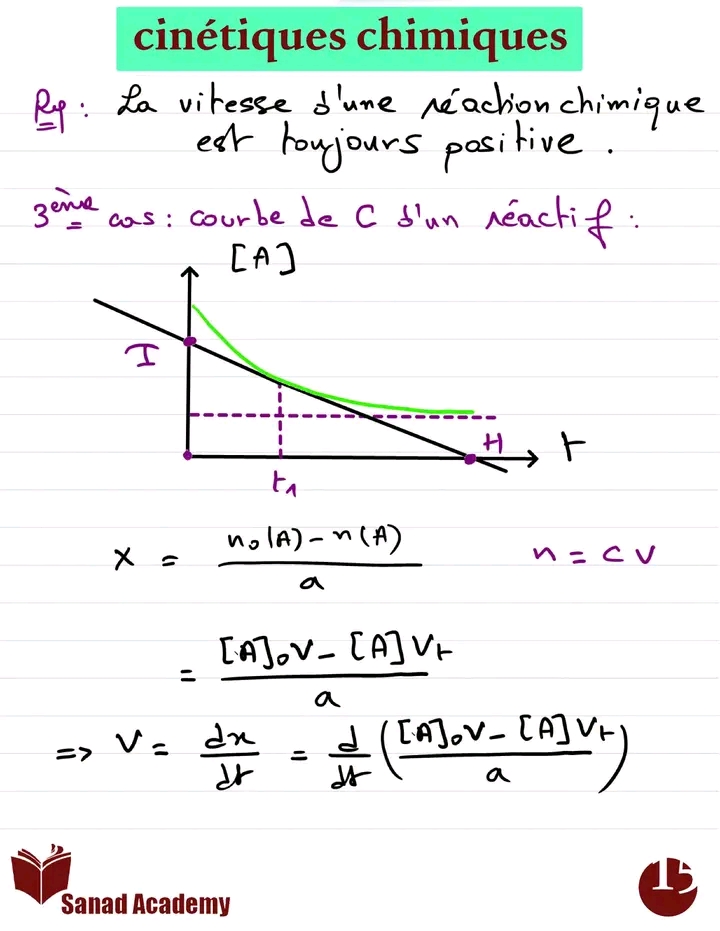 cinétiques chimiques
Rq : La vitesse d'une réaction chimique
est toujours positive .
3ème cas : courbe de C d'un réactif :
[A]
I
H
t
t1
x = n₀(A) - n(A) / a
n = c v
= [A]₀V - [A]Vt / a
=> V = dx/dt = d/dt ([A]₀V - [A]Vt / a)
Sanad Academy
15